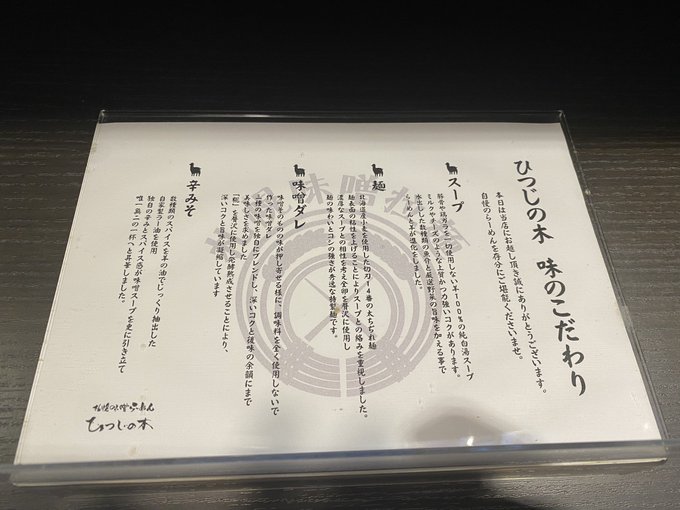 ひつじの木 味のこだわり
本日は当店にお越し頂き誠にありがとうございます。
自慢のらーめんを存分にご堪能くださいませ。
スープ
豚骨や鶏ガラを一切使用しない羊100%の純白湯スープ
ミルクやチーズのような上質かつ力強いコクがあります。
味出しした数種類の魚骨と厳選野菜の旨味を加える事で
らーめんと羊が進化をしました。
麺
北海道産小麦を使用した切刃14番の太ちぢれ麺
麺表面の粘性を上げることによりスープとの絡みを重視しました。
濃厚なスープとの相性を考え全卵を贅沢に使用し
麺の味わいとコシの強さが秀逸な特製麺です。
味噌ダレ
味噌そのものの味が押し寄せる様に、調味料を全く使用しないで
作った味噌ダレ
種の味噌を独自にブレンドし、深いコクと後味の余韻にまで
美味しさを求めました
「糀」を贅沢に使用し発酵熟成させることにより、
深いコクと旨味が凝縮しています
辛みそ
数種類のスパイスを羊の油でじっくり抽出した
自家製ラー油を使用
独自の辛みとスパイス感が味噌スープを更に引き立て
唯一無二の一杯へと昇華しました。
札幌味噌らーめん
ひつじの木
味噌